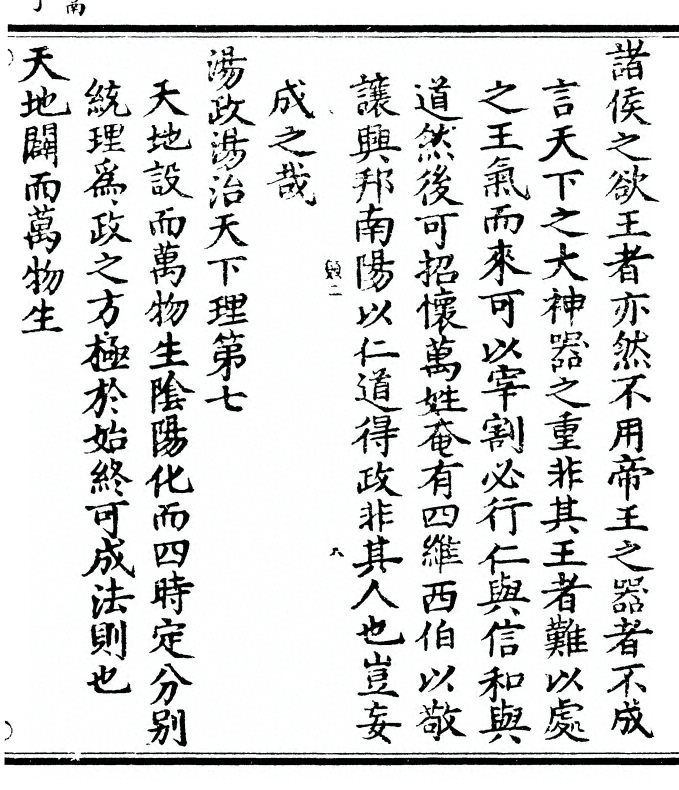 諸侯之欲王者亦然不用帝王之器者不成
言天下之大神器之重非其王者難以處
之王氣而來可以宰割必行仁與信和與
道然後可招懷萬姓奄有四維西伯以敬
讓興邦南陽以仁道得政非其人也豈妄
成之哉
湯政湯治天下理第七
天地設而萬物生陰陽化而四時定分別
統理爲政之方極於始終可成法則也
天地闢而萬物生